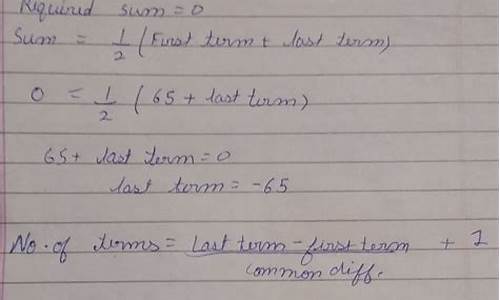 Required sum = 0
Sum = 1/2 (First term + last term)
0 = 1/2 (65 + last term)
65 + last term = 0
last term = -65
No. of terms = last term - first term / common diff. + 1